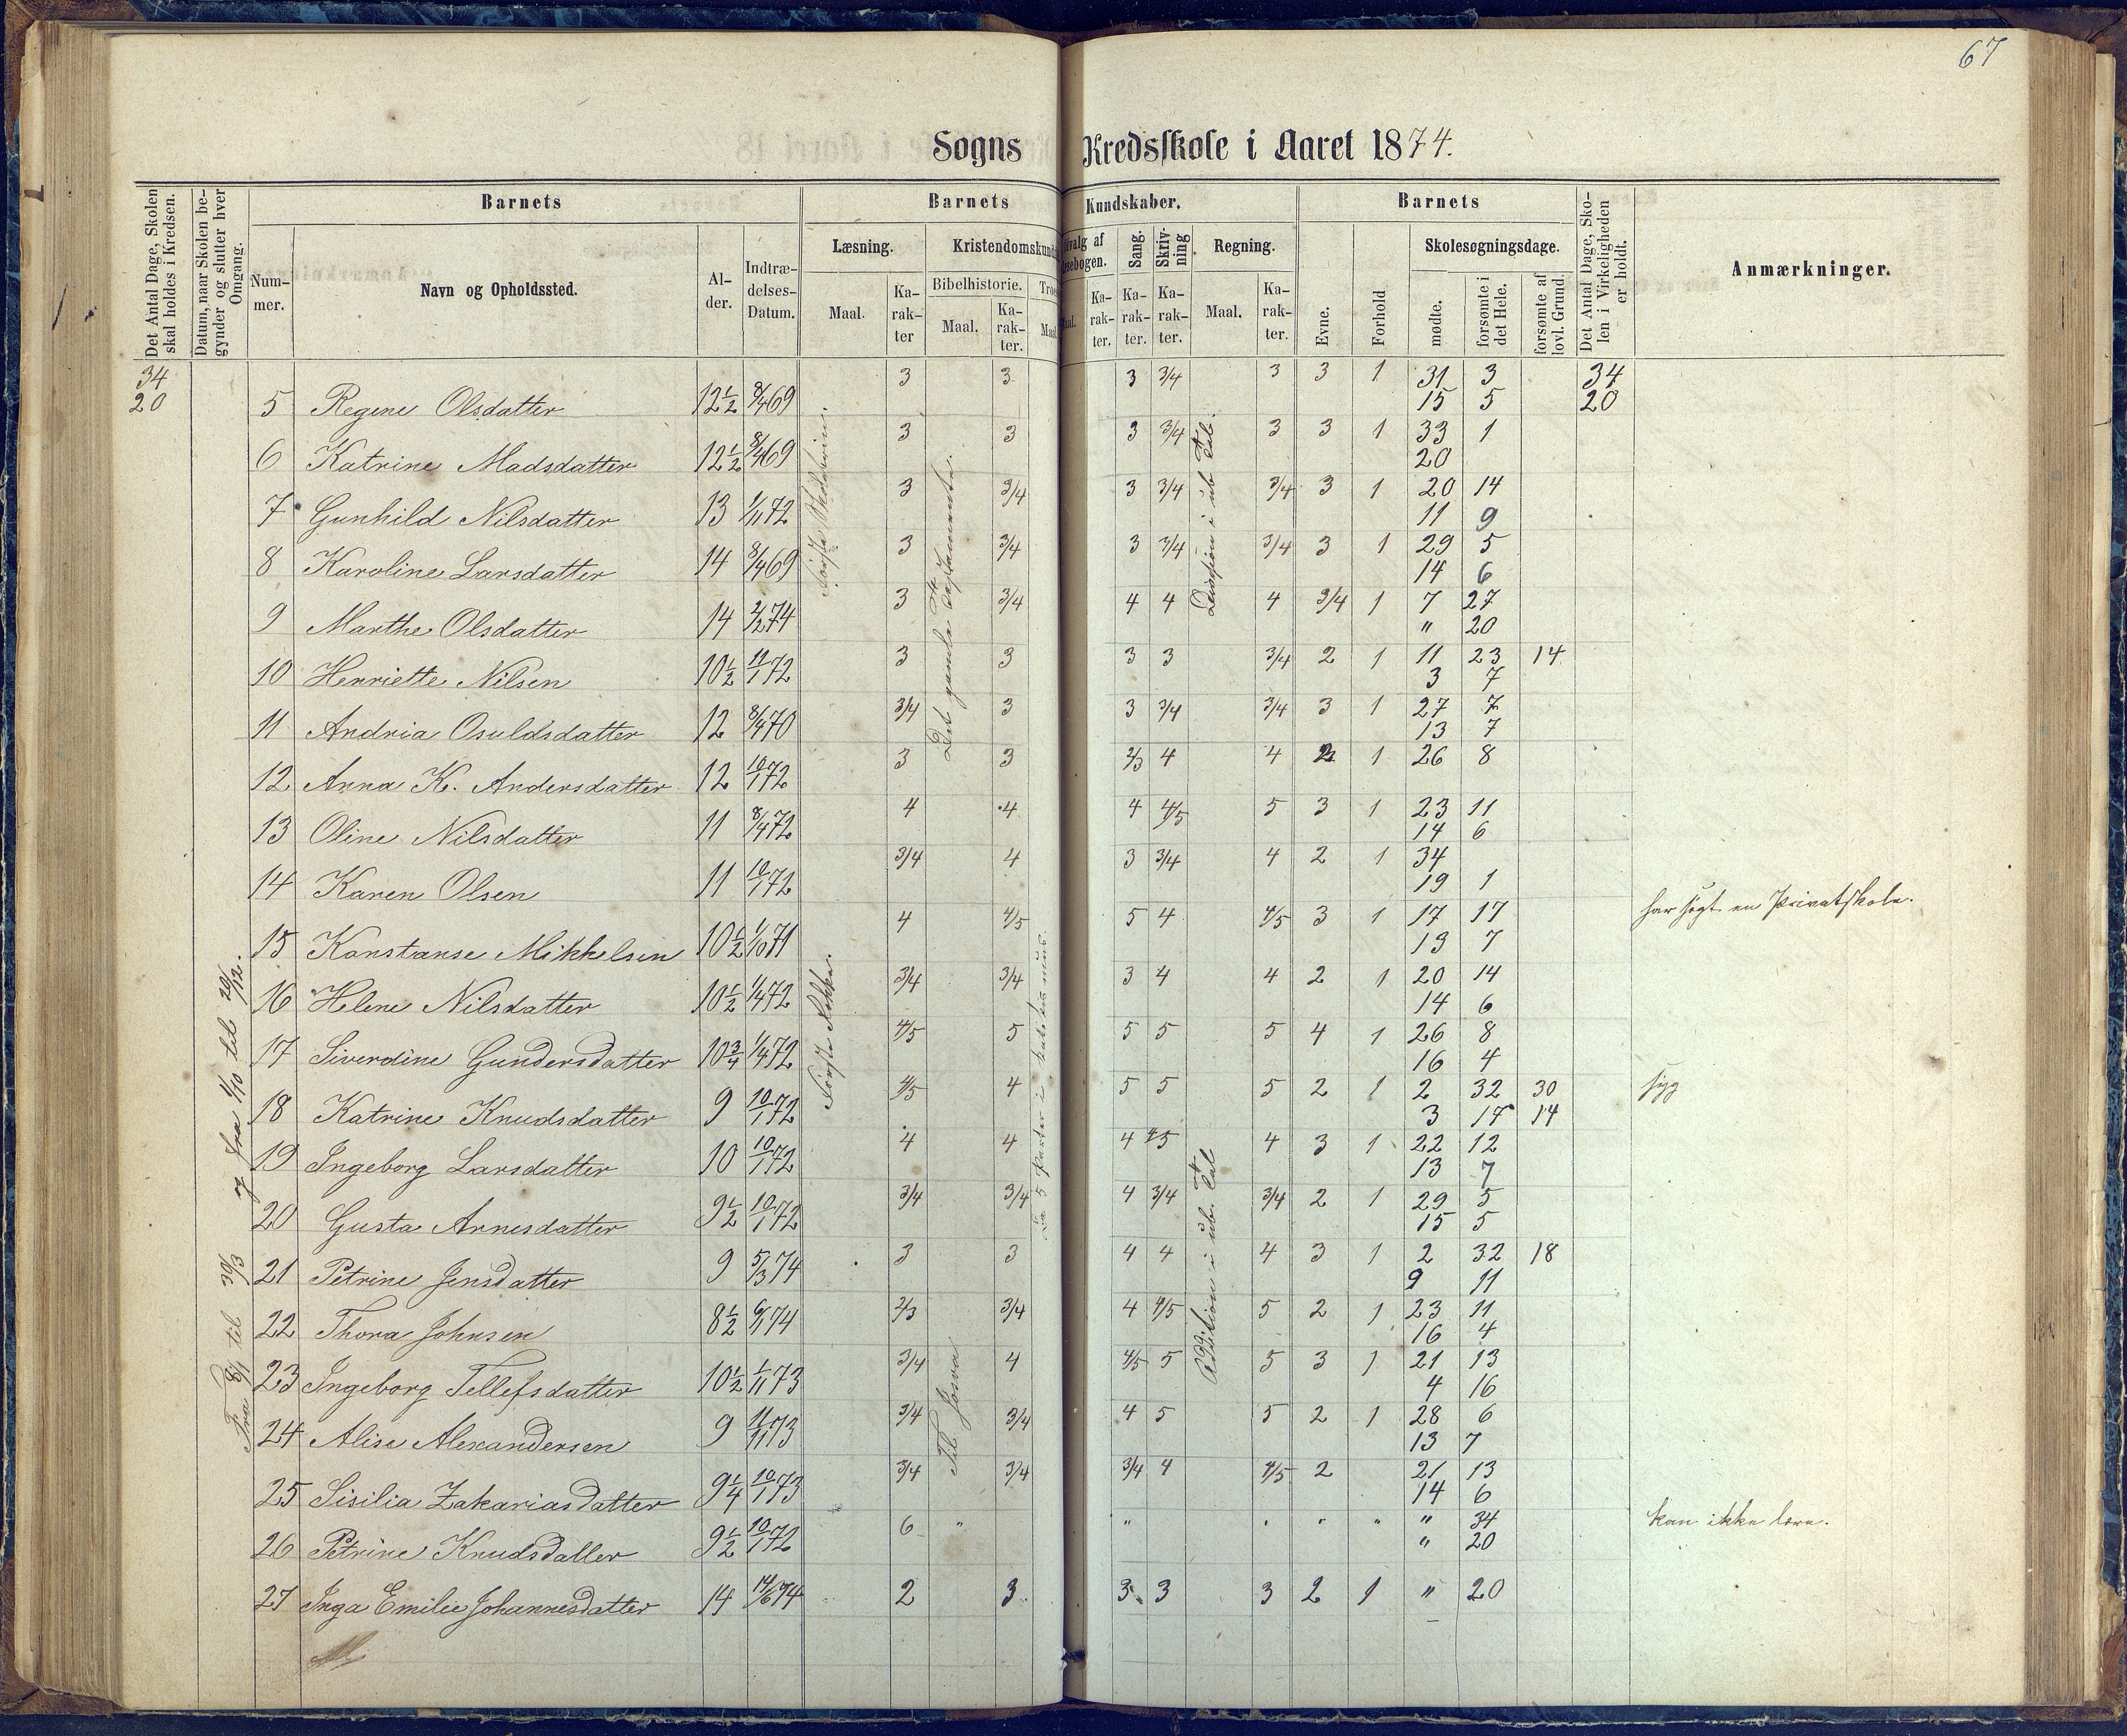 67
Sogns Kredsskole i Aaret 1874.
Det Antal Dage, Skolen skal holdes i Kredsen.
Datum, naar Skolen begynder og slutter hver Omgang.
Barnets
Nummer.
Navn og Opholdssted.
Alder.
Indtrædelses-Datum.
Barnets Kundskaber.
Læsning.
Maal.
Karakter
Kristendomskund
Bibelhistorie.
Maal.
Karakter.
Troes
Maal
valg af
sebogen.
aal.
Karakter.
Sang.
Karakter.
Skrivning
Karakter.
Regning.
Maal.
Karakter.
Barnets
Evne.
Forhold
Skolesøgningsdage.
mødte.
forsømte i det Hele.
forsømte af lovl. Grund.
Det Antal Dage, Skolen i Virkeligheden er holdt.
Anmærkninger.
34 3 3 3 3/4 3 3 1 31 3 34
20 5 Regine Olsdatter 12½ 8/4 69 15 5 20
3 3 3 3/4 3 3 1 33 1
6 Katrine Madsdatter 12½ 8/4 69 20
3 3/4 3 3/4 3/4 3 1 20 14
7 Gunhild Nilsdatter 13 1/11 72 11 9
3 3/4 3 3/4 3/4 3 1 29 5
8 Karoline Larsdatter 14 8/4 69 14 6
3 3/4 4 4 4 3/4 1 7 27
9 Marthe Olsdatter 14 2/2 74 " 20
3 3 3 3 3/4 2 1 11 23 14
10 Henriette Nilsen 10½ 11/1 72 3 7
3/4 3 3 3/4 3/4 3 1 27 7
11 Andria Osuldsdatter 12 8/4 70 13 7
3 3 2/3 4 4 1 26 8
12 Anna K. Andersdatter 12 10/1 72
4 4 4 4/5 5 3 1 23 11
13 Oline Nilsdatter 11 8/4 72 14 6
3/4 4 3 3/4 4 2 1 34
14 Karen Olsen 11 10/1 72 19 1
4 4/5 5 4 4/5 3 1 17 17 har søgt en Privatskole.
15 Konstanse Mikkelsen 10½ 1/10 71 13 7
3/4 3/4 3 4 4 2 1 20 14
16 Helene Nilsdatter 10½ 1/4 72 14 6
4/5 5 5 5 5 4 1 26 8
17 Siverdine Gundersdatter 10¾ 1/4 72 16 4
4/5 4 5 5 5 2 1 2 32 30 syg
18 Katrine Knudsdatter 9 10/1 72 3 17 14
4 4 4 4/5 4 3 1 22 12
19 Ingeborg Larsdatter 10 10/1 72 13 7
3/4 3/4 4 3/4 3/4 2 1 29 5
20 Gusta Arnesdatter 9½ 10/1 72 15 5
3 3 4 4 4 3 1 2 32 18
21 Petrine Jensdatter 9 5/3 74 9 11
2/3 3/4 4 4/5 5 2 1 23 11
22 Thora Johnsen 8½ 6/1 74 16 4
3/4 4 4/5 5 5 3 1 21 13
23 Ingeborg Tellefsdatter 10½ 1/11 73 4 16
3/4 3/4 4 5 5 2 1 28 6
24 Alise Alexandersen 9 11/11 73 13 7
3/4 3/4 3/4 4 4/5 2 21 13
25 Sisilia Zakariasdatter 9¼ 10/1 73 14 6
6 " " " " " " 34 kan ikke lære.
26 Petrine Knudsdatter 9½ 10/1 72 " 20
27 Inga Emilie Johannesdatter 14 14/6 74 2 3 3 3 3 2 1 " 20
Fra 8/1 til 30/3 og fra 1/10 til 20/12.
Første Rekke.
Det gamle Testamente.
Til Josva
Division i ub. Tal.
Addition i ub. Tal